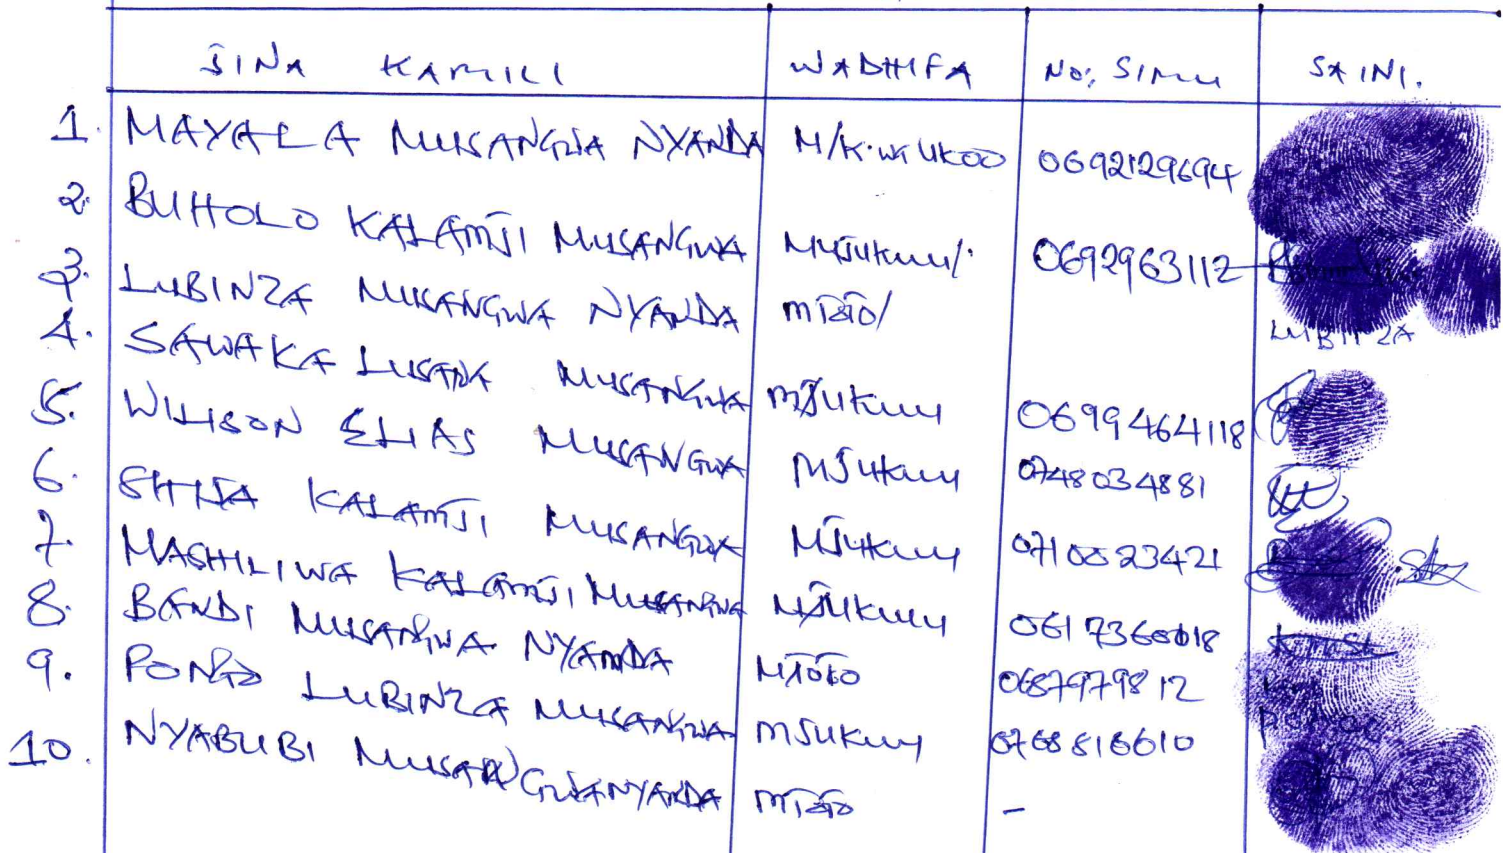 JINA KAMILI WADHIFA NO: SIMU SAINI.
1. MAYALA MUSANGWA NYANDA M/K.WA UKOO 0692129694
2. BUHOLO KALAMJI MUSANGWA MJUKUU/. 0692963112
3. LUBINZA MUSANGWA NYANDA MTOTO/ LUBINZA
4. SAWAKA LUSANA MUSANGWA MJUKUU 0699464118
5. WILISON ELIAS MUSANGWA MJUKUU 0748034881
6. SHIJA KALAMJI MUSANGWA MJUKUU 0710023421
7. MASHILIWA KALAMJI MUSANGWA MJUKUU 0617360018
8. BANDI MUSANGWA NYANDA MTOTO 0687979812
9. PONGO LUBINZA MUSANGWA MJUKUU 0768816610
10. NYABUBI MUSANGWA NYANDA MTOTO -